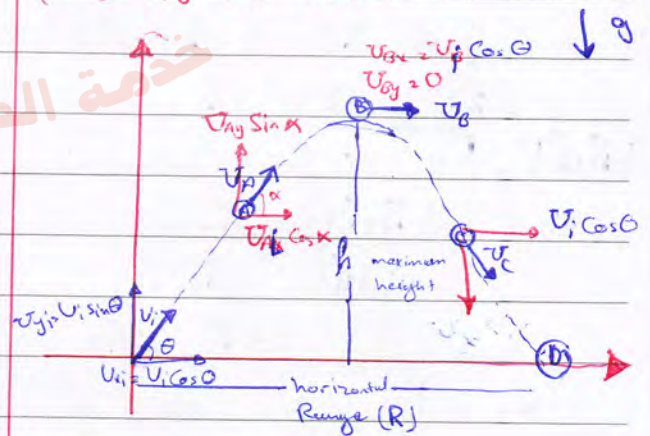 g
v_Bx = v_i Cos θ
v_By = 0
B
v_B
خدمة
v_Ay Sin α
v_A
α
A
v_Ax Cos α
C
v_i Cos θ
v_C
h
maximum
height
v_yi = v_i sin θ
v_i
θ
v_xi = v_i Cos θ
D
horizontal
Range (R)